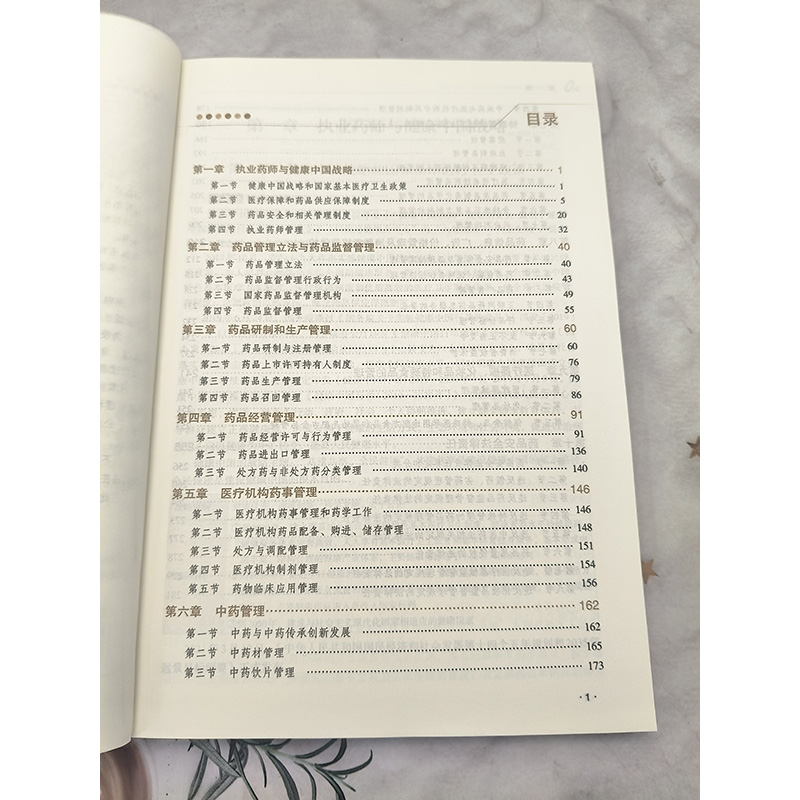 目录
第一章 执业药师与健康中国战略 1
第一节 健康中国战略和国家基本医疗卫生政策 1
第二节 医疗保障和药品供应保障制度 5
第三节 药品安全和相关管理制度 20
第四节 执业药师管理 32
第二章 药品管理立法与药品监督管理 40
第一节 药品管理立法 40
第二节 药品监督管理行政行为 43
第三节 国家药品监督管理机构 49
第四节 药品监督管理 55
第三章 药品研制和生产管理 60
第一节 药品研制与注册管理 60
第二节 药品上市许可持有人制度 76
第三节 药品生产管理 79
第四节 药品召回管理 86
第四章 药品经营管理 91
第一节 药品经营许可与行为管理 91
第二节 药品进出口管理 136
第三节 处方药与非处方药分类管理 140
第五章 医疗机构药事管理 146
第一节 医疗机构药事管理和药学工作 146
第二节 医疗机构药品配备、购进、储存管理 148
第三节 处方与调配管理 151
第四节 医疗机构制剂管理 154
第五节 药物临床应用管理 156
第六章 中药管理 162
第一节 中药与中药传承创新发展 162
第二节 中药材管理 165
第三节 中药饮片管理 173
·1·